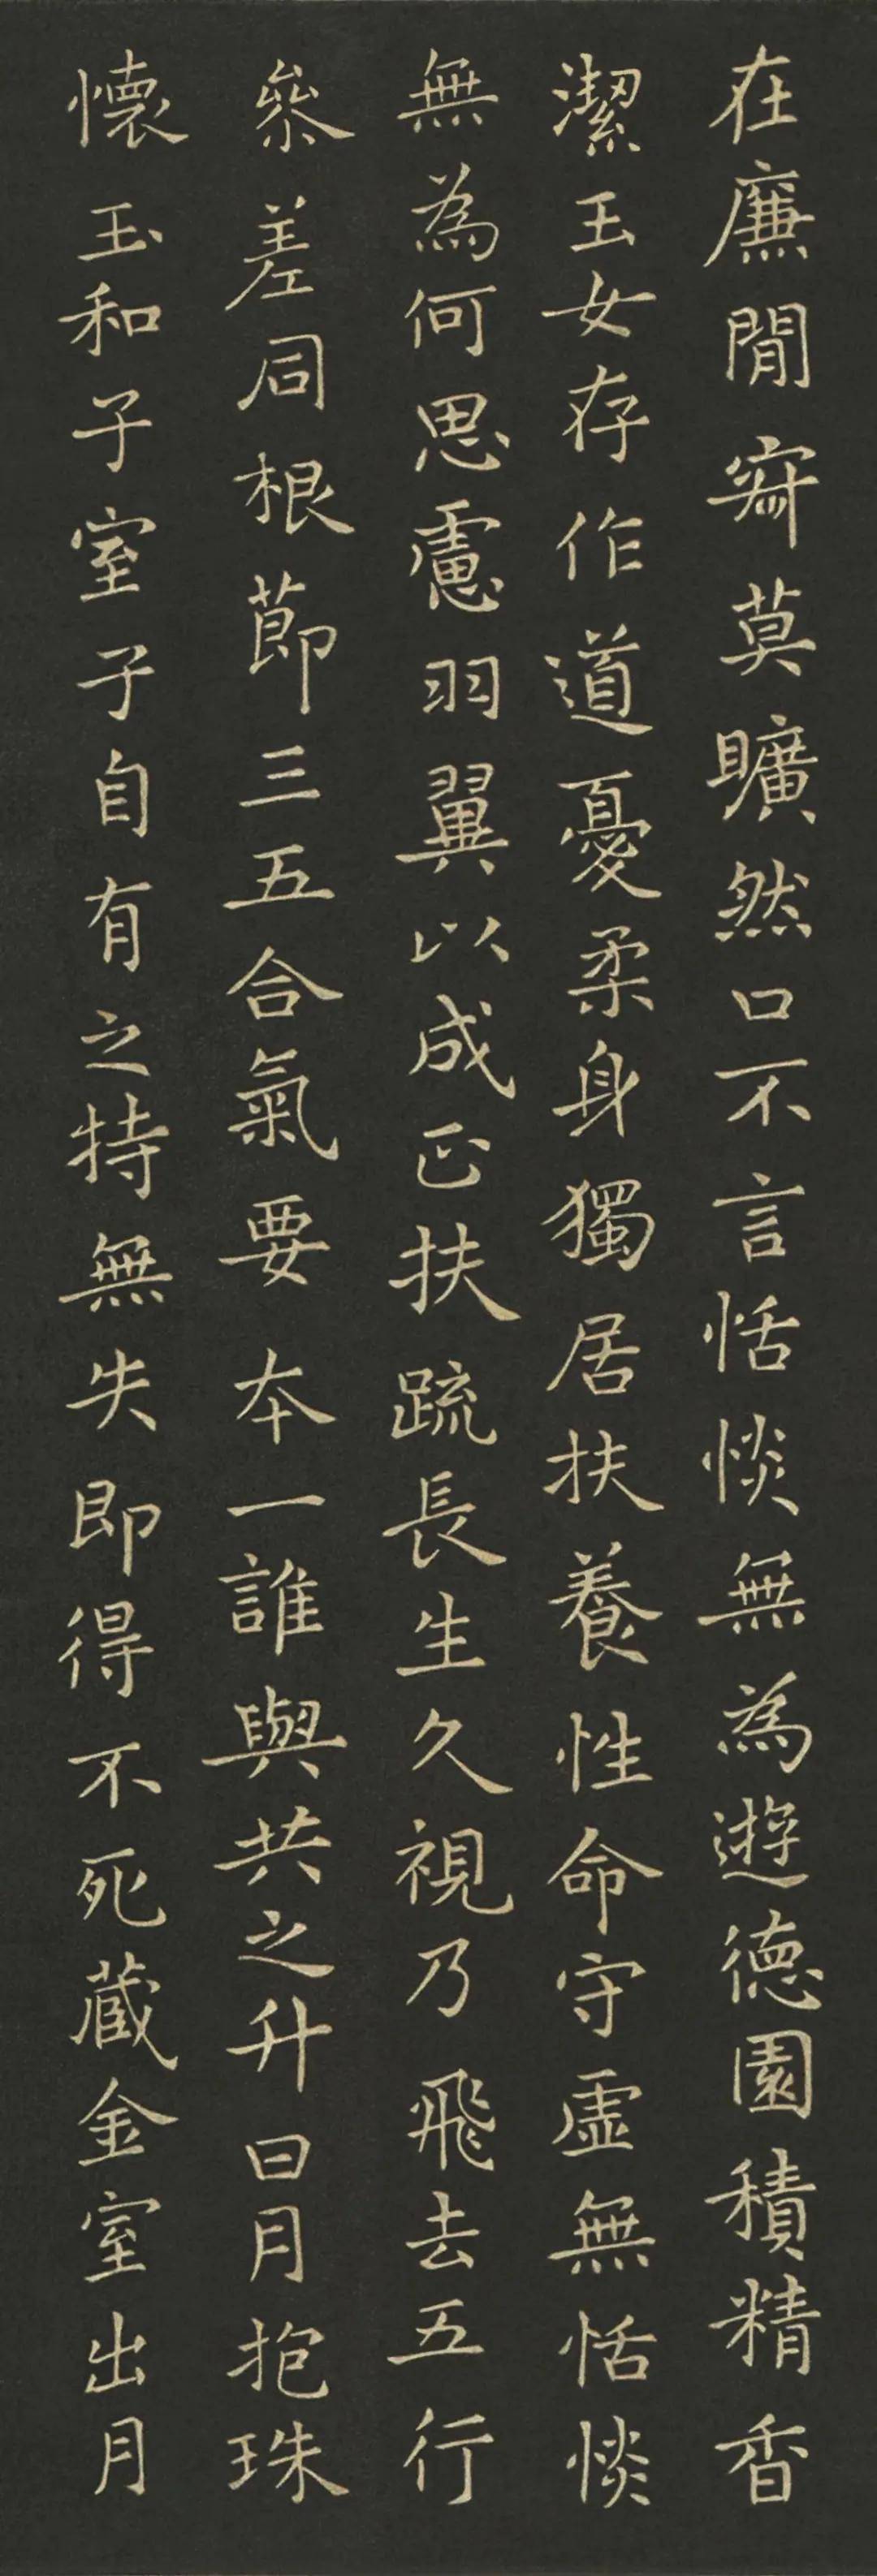 在廉閒寂莫曠然口不言恬惔無為遊德園積精香
潔玉女存作道憂柔身獨居扶養性命守虛無恬惔
無為何思慮羽翼以成正扶踈長生久視乃飛去五行
參差同根節三五合氣要本一誰與共之升日月抱珠
懷玉和子室子自有之持無失即得不死藏金室出月